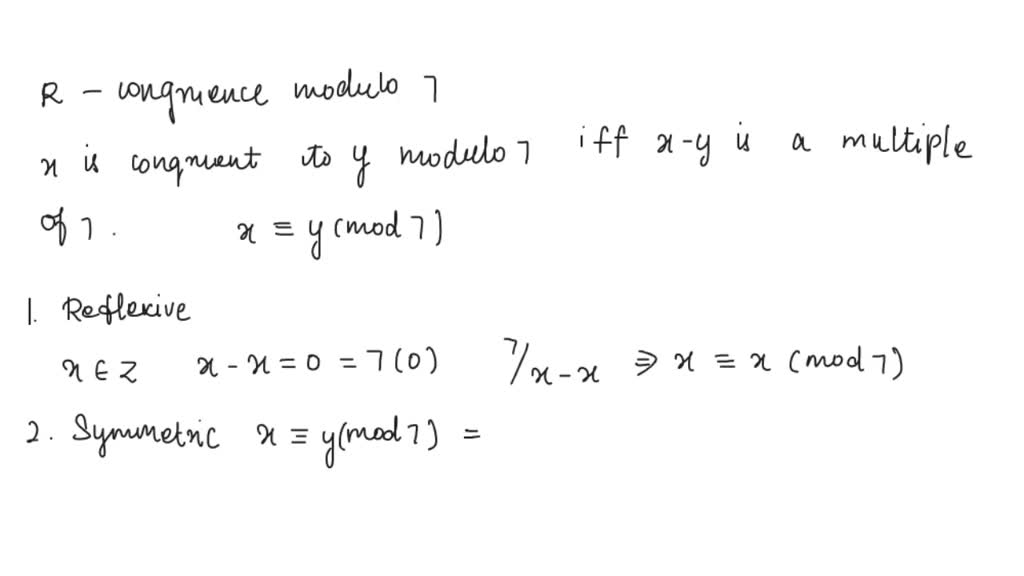 R - congruence modulo 7
x is congruent to y modulo 7 iff x-y is a multiple
of 7. x ≡ y (mod 7)
1. Reflexive
x ∈ Z x - x = 0 = 7(0) 7/x-x ⇒ x ≡ x (mod 7)
2. Symmetric x ≡ y(mod 7) =